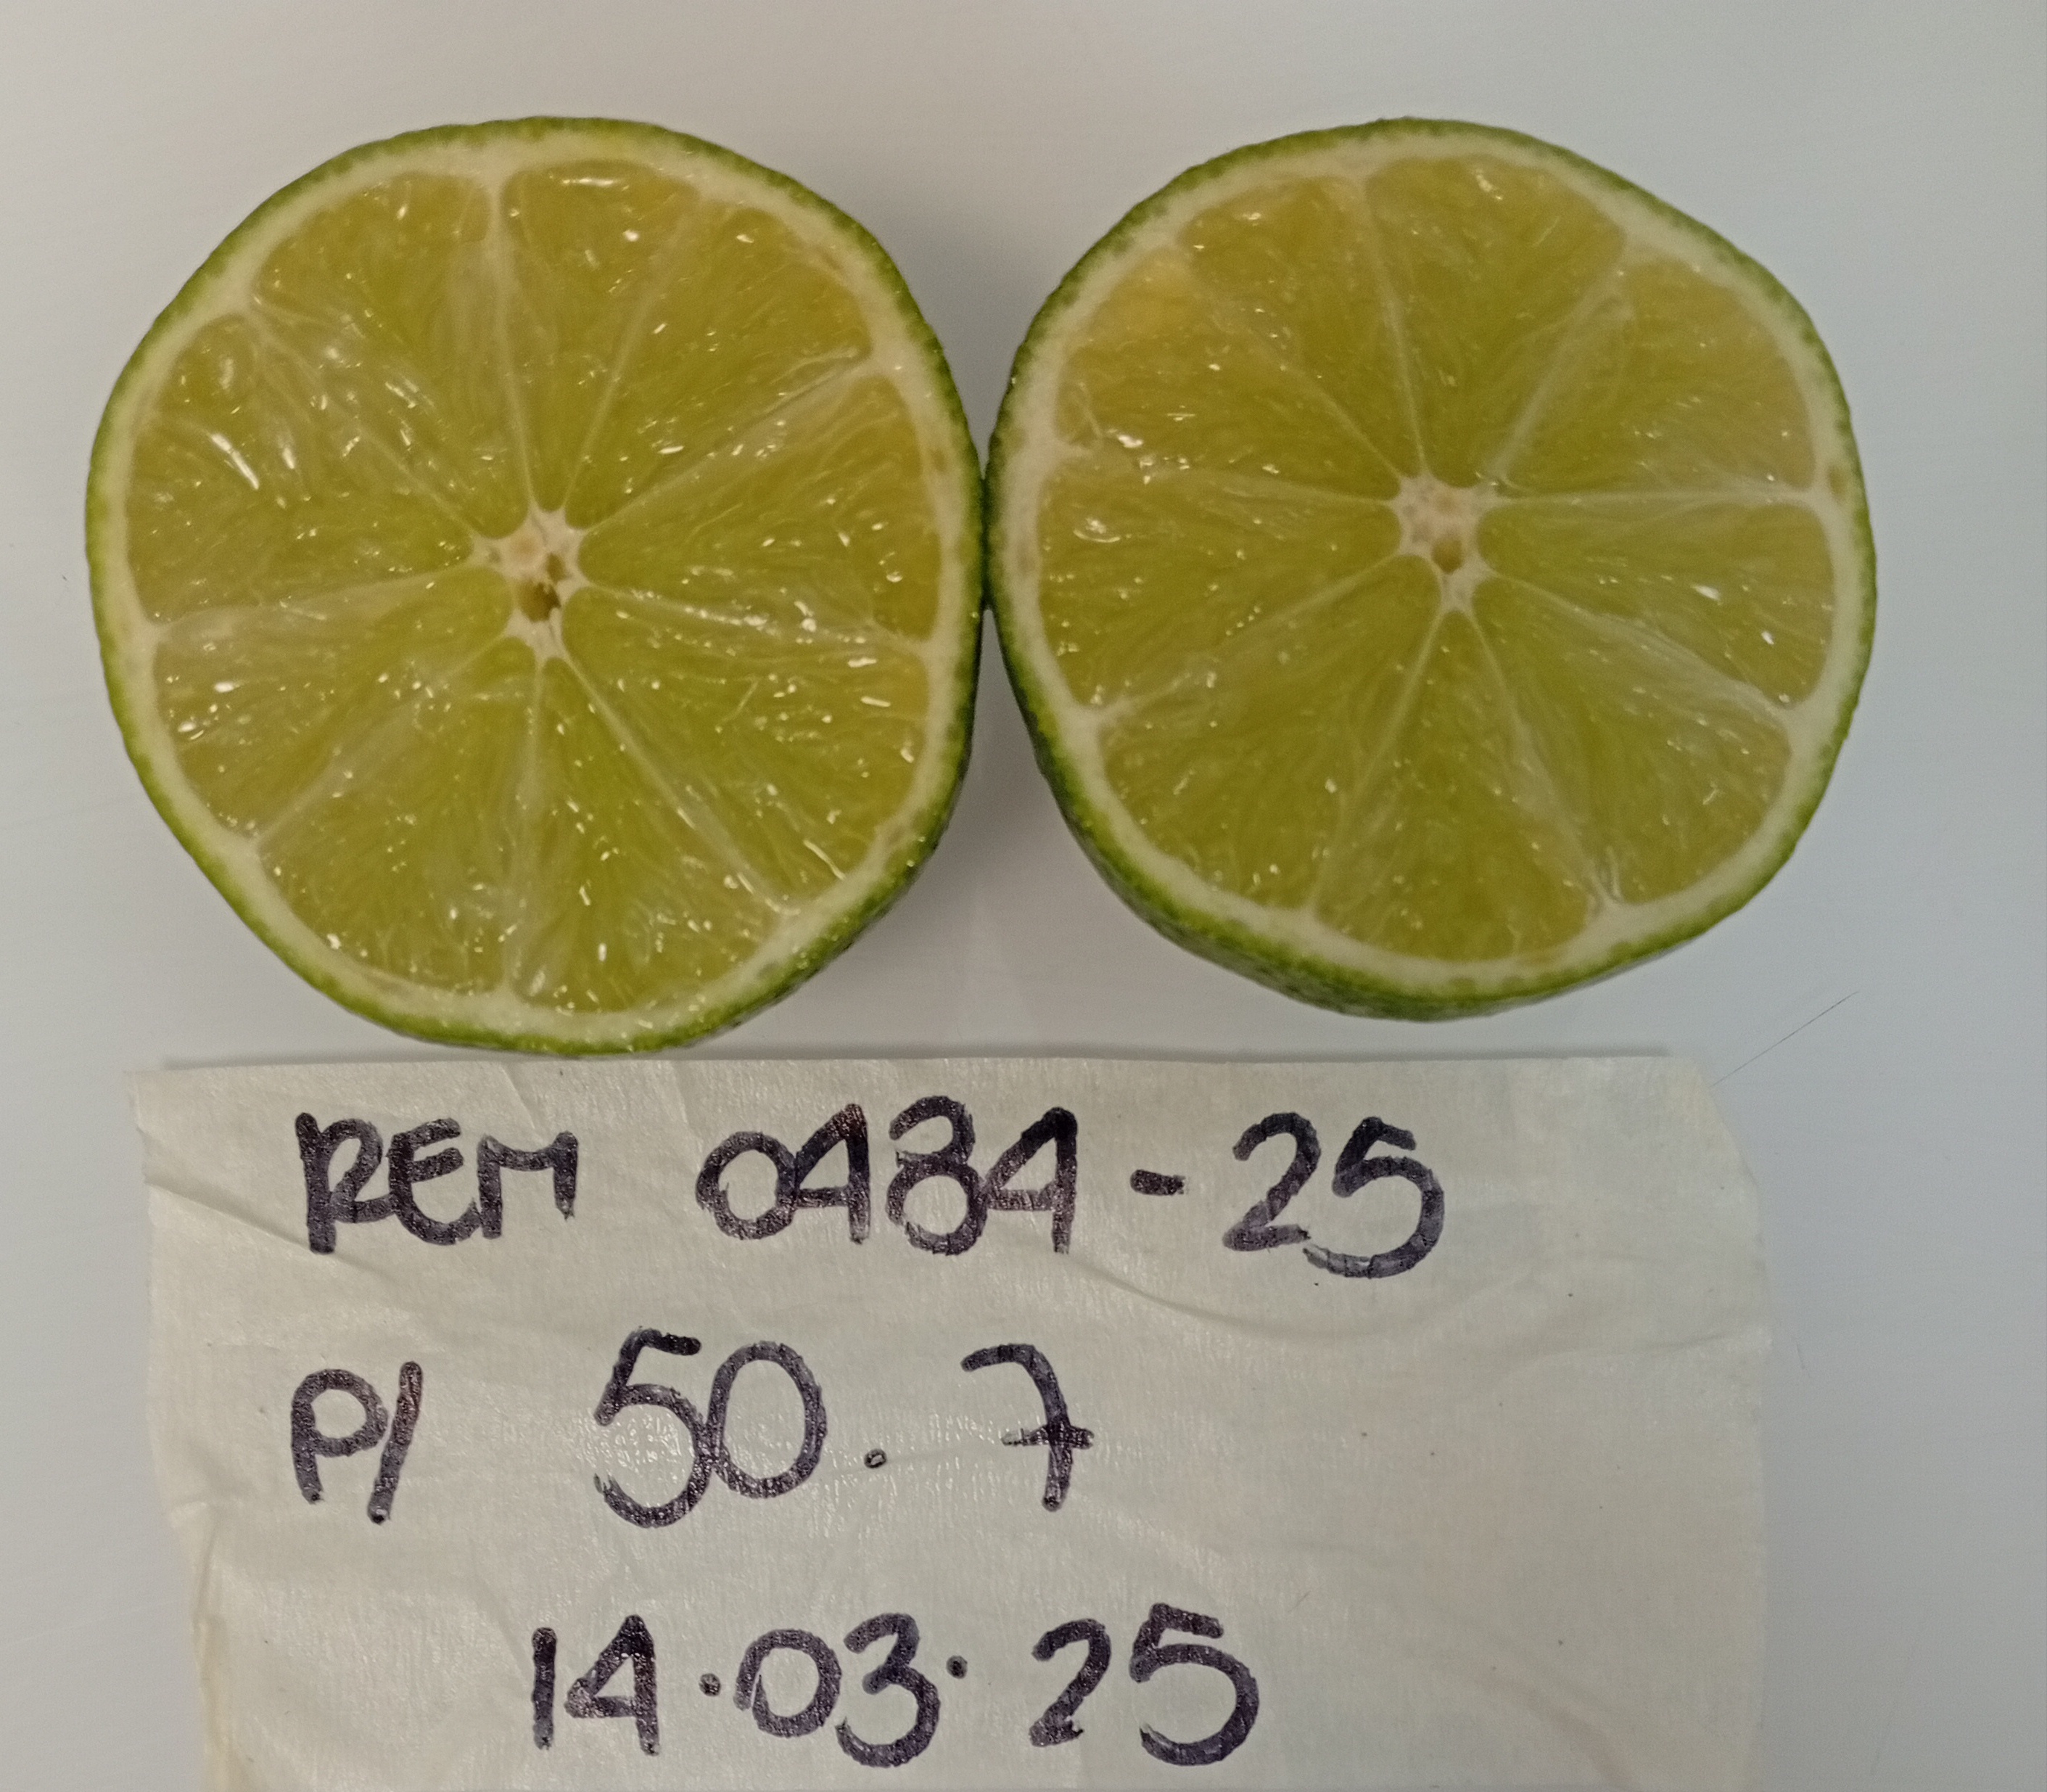 REM 0484-25
P/ 50.7
14.03.25